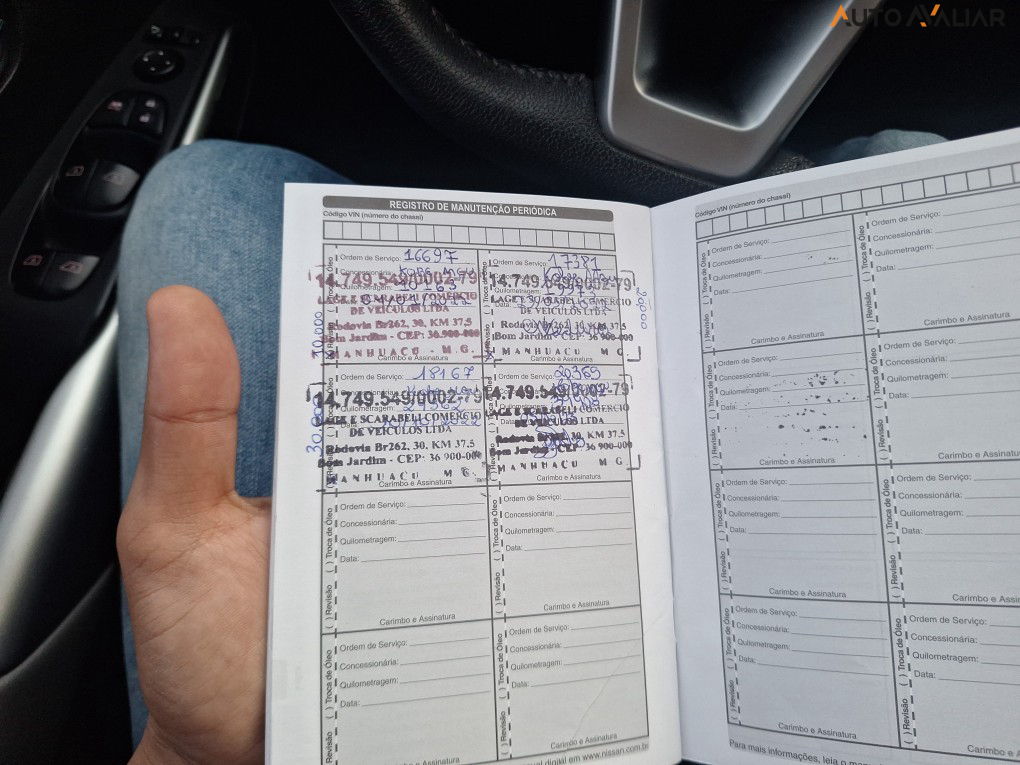 AUTO AVALIAR
REGISTRO DE MANUTENÇÃO PERIÓDICA
Código VIN (número do chassi)
Ordem de Serviço: 16697
Concessionária:
Quilometragem: 10.163
14.749.549/0002-79
LAGE E SCARABELI COMERCIO
DE VEICULOS LTDA
Rodovia Br262, 30, KM 37,5
Bom Jardim - CEP: 36.900-000
MANHUAÇU - M.G.
Carimbo e Assinatura
( ) Troca de Óleo
Revisão
10.000
Ordem de Serviço: 17381
14.749.549/0002-79
LAGE E SCARABELI COMERCIO
DE VEICULOS LTDA
Rodovia Br262, 30, KM 37,5
Bom Jardim - CEP: 36 900-000
MANHUAÇU M G
Carimbo e Assinatura
( ) Troca de Óleo
Revisão
20.000
Ordem de Serviço: 18167
14.749.549/0002-79
LAGE E SCARABELI COMERCIO
DE VEICULOS LTDA
Rodovia Br262, 30, KM 37,5
Bom Jardim - CEP: 36 900-000
MANHUAÇU M G.
Carimbo e Assinatura
Ordem de Serviço: 20369
14.749.549/0002-79
LAGE E SCARABELI COMERCIO
DE VEICULOS LTDA
Rodovia Br262, 30, KM 37,5
Bom Jardim - CEP: 36 900-000
MANHUAÇU M G
Carimbo e Assinatura
Ordem de Serviço:
Concessionária:
Quilometragem:
Data:
( ) Revisão ( ) Troca de Óleo
Carimbo e Assinatura
Ordem de Serviço:
Concessionária:
Quilometragem:
Data:
( ) Revisão ( ) Troca de Óleo
Carimbo e Assinatura
Ordem de Serviço:
Concessionária:
Quilometragem:
Data:
( ) Revisão ( ) Troca de Óleo
Ordem de Serviço:
Concessionária:
Quilometragem:
Data:
( ) Revisão ( ) Troca de Óleo
Carimbo e Assinatura
em www.nissan.com.br
Código VIN (número do chassi)
Ordem de Serviço:
Concessionária:
Quilometragem:
Data:
( ) Revisão ( ) Troca de Óleo
Carimbo e Assinatura
Ordem de Serviço:
Concessionária:
Quilometragem:
Data:
( ) Revisão ( ) Troca de Óleo
Carimbo e Assinatura
Ordem de Serviço:
Concessionária:
Quilometragem:
Data:
( ) Revisão ( ) Troca de Óleo
Carimbo e Assinatura
Ordem de Serviço:
Concessionária:
Quilometragem:
Data:
( ) Revisão ( ) Troca de Óleo
Carimbo e Assinatura
Ordem de Serviço:
Concessionária:
Quilometragem:
Data:
( ) Revisão ( ) Troca de Óleo
Carimbo e Assinatura
Ordem de Serviço:
Concessionária:
Quilometragem:
Data:
( ) Revisão ( ) Troca de Óleo
Carimbo e Assinatura
Ordem de Serviço:
Concessionária:
Quilometragem:
Data:
( ) Revisão ( ) Troca de Óleo
Carimbo e Assinatura
Ordem de Serviço:
Concessionária:
Quilometragem:
Data:
( ) Revisão ( ) Troca de Óleo
Carimbo e A
Para mais informações, leia o